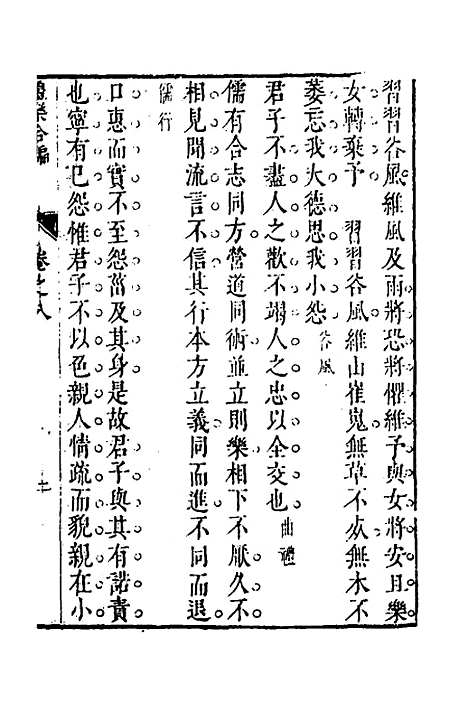 習習谷風維風及雨將恐將懼維予與女將安且樂
女轉棄予　習習谷風維山崔嵬無草不死無木不
萎忘我大德思我小怨谷風
君子不盡人之歡不竭人之忠以全交也曲禮
儒有合志同方營道同術並立則樂相下不厭久不
相見聞流言不信其行本方立義同而進不同而退
儒行
口惠而實不至怨菑及其身是故君子與其有諾責
也寧有已怨惟君子不以色親人情疏而貌親在小
禮樂合編　卷之八